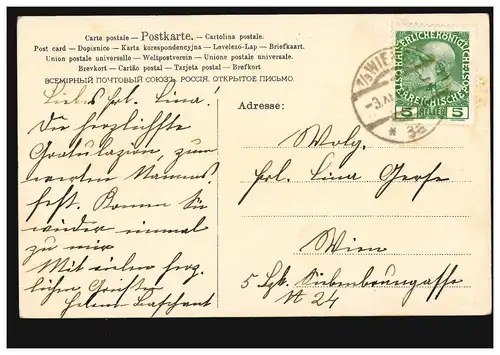 Carte postale – Postkarte. – Cartolina postale.
Post card – Dopisnice – Karta korespondencyjna – Levelező-Lap – Briefkaart.
Union postale universelle – Weltpostverein – Unione postale universale.
Brevkort – Cartão postal – Tarjeta postal – Brefkort
ВСЕМІРНЫЙ ПОЧТОВЫЙ СОЮЗЪ. РОССІЯ. ОТКРЫТОЕ ПИСЬМО.
Liebes Frl. Lina!
Die herzlichste
Gratulazion, zum
werten Namens
fest. Komen Sie
wieder einmal
zu mir
Mit vielen herz
lichen Grüßen
Helene
Adresse:
Wolg.
Frl. Lina
Wien
5 Bzk. Siebenbrunngasse
N 24
KAISERLICHE KÖNIGLICHE
ÖSTERREICHISCHE POST
5 HELLER 5
WIEN
* 3a